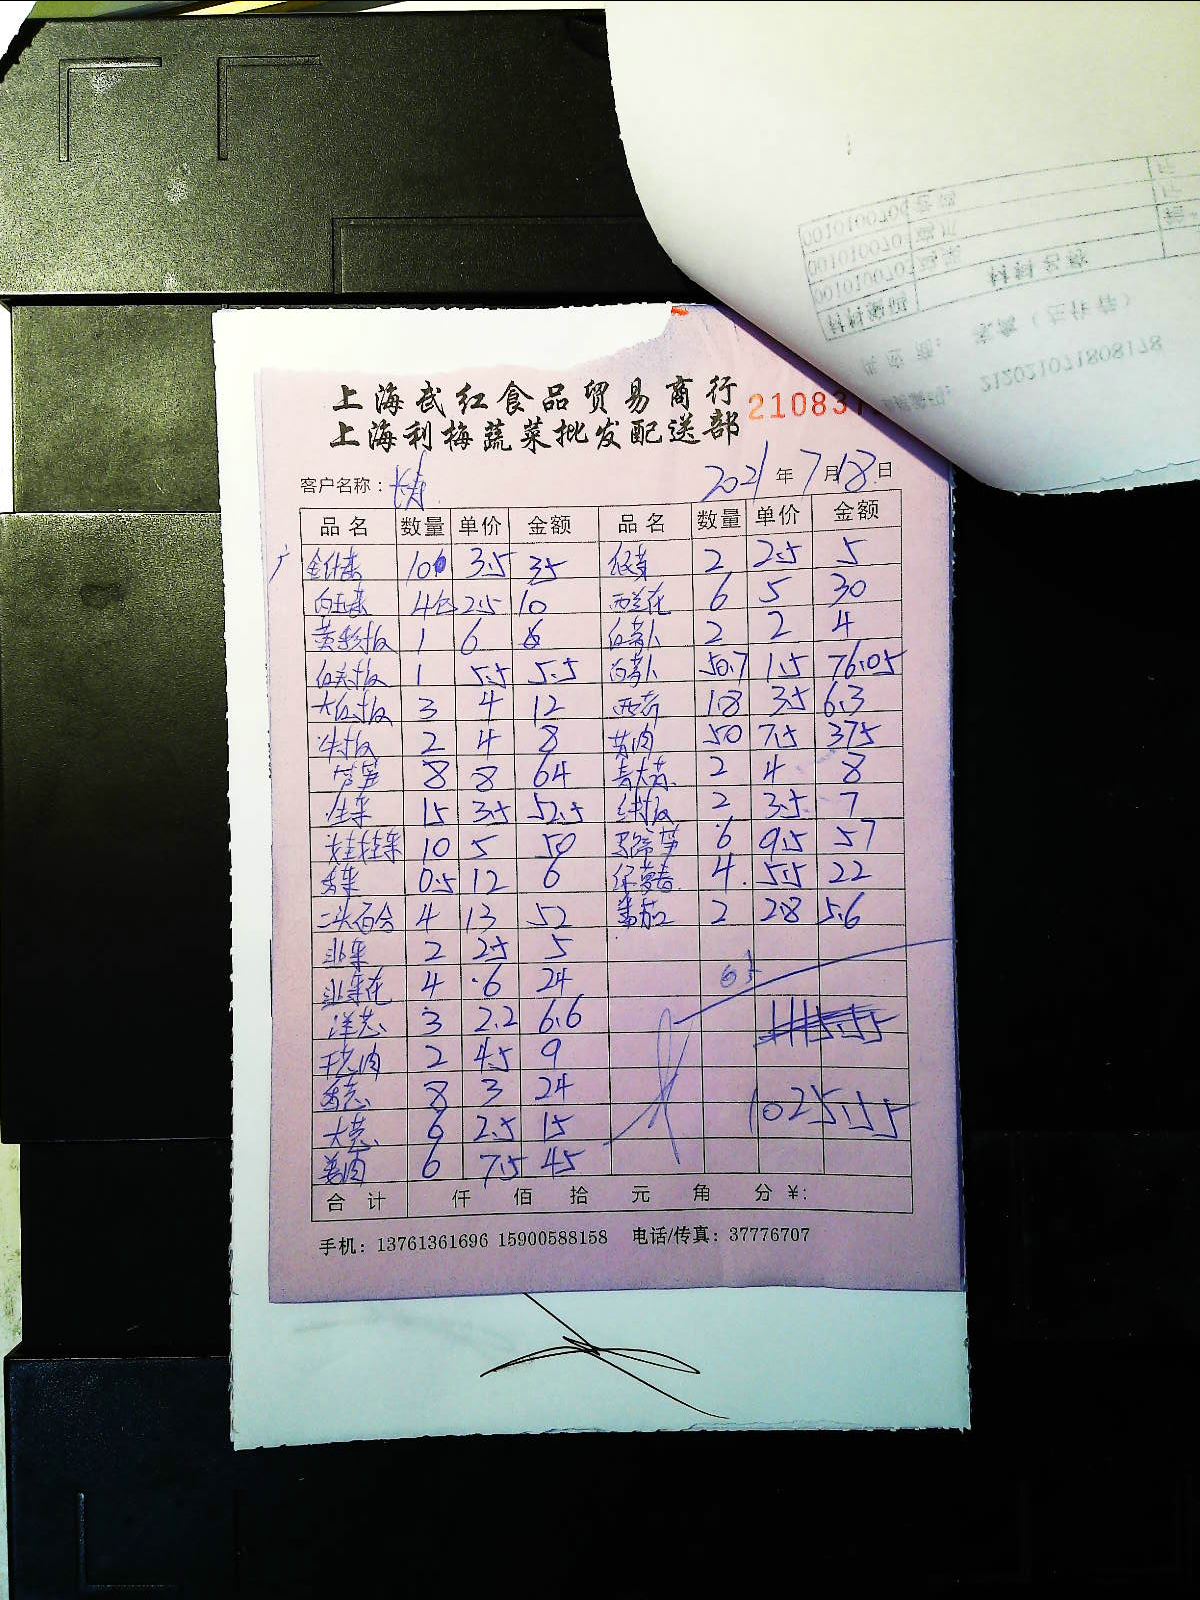 上海武红食品贸易商行
上海利梅蔬菜批发配送部
210837
客户名称：长寿 2021年7月18日
品名 数量 单价 金额 品名 数量 单价 金额
金针菇 10 3.5 35 2 2.5 5
白玉菇 4包 2.5 10 西兰花 6 5 30
黄彩椒 1 6 6 红萝卜 2 2 4
红彩椒 1 5.5 5.5 白萝卜 50.7 1.5 76.05
大红椒 3 4 12 西芹 1.8 3.5 6.3
尖椒 2 4 8 50 7.5 375
芦笋 8 8 64 青大蒜 2 4 8
生菜 15 3.5 52.5 线椒 2 3.5 7
娃娃菜 10 5 50 马蹄笋 6 9.5 57
香菜 0.5 12 6 4 5.5 22
二头百合 4 13 52 番茄 2 2.8 5.6
韭菜 2 2.5 5
韭菜花 4 6 24
洋葱 3 2.2 6.6
2 4.5 9
香葱 8 3 24
大葱 6 2.5 15
姜肉 6 7.5 45
1025.55
合计 仟 佰 拾 元 角 分 ¥:
手机：13761361696 15900588158 电话/传真：37776707
212021071808178